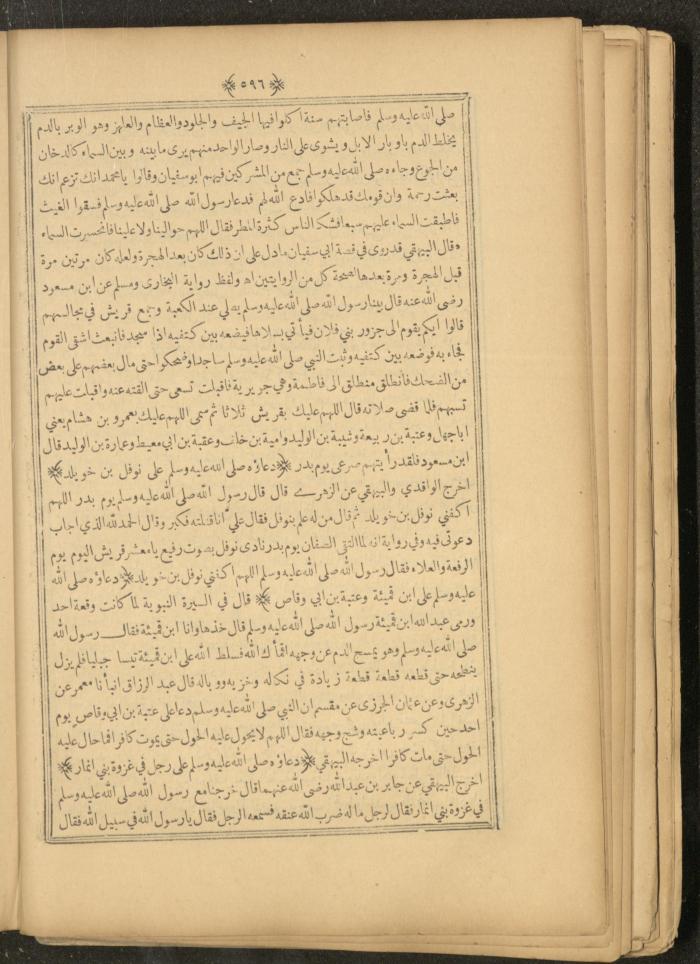 ﴿ ٥٩٦ ﴾
صلى الله عليه وسلم فاصابتهم سنة اكلوا فيها الجيف والجلود والعظام والعلهز وهو الوبر بالدم
يخلط الدم باوبار الابل ويشوى على النار وصار الواحد منهم يرى ما بينه وبين السماء كالدخان
من الجوع وجاءه صلى الله عليه وسلم جمع من المشركين فيهم ابو سفيان وقالوا يا محمد انك تزعم انك
بعثت رحمة وان قومك قد هلكوا فادع الله لهم فدعا رسول الله صلى الله عليه وسلم فسقوا الغيث
فاطبقت السماء عليهم سبعا فشكا الناس كثرة المطر فقال اللهم حوالينا ولا علينا فانحسرت السماء
وقال البيهقي قد روى في قصة ابي سفيان ما دل على ان ذلك كان بعد الهجرة ولعله كان مرتين مرة
قبل الهجرة ومرة بعدها لصحة كل من الروايتين اه ولفظ رواية البخارى ومسلم عن ابن مسعود
رضى الله عنه قال بينا رسول الله صلى الله عليه وسلم يصلي عند الكعبة وجمع قريش في مجالسهم
قالوا ايكم يقوم الى جزور بني فلان فيأتي بسلاها فيضعه بين كتفيه اذا سجد فانبعث اشقى القوم
فجاء به فوضعه بين كتفيه وثبت النبي صلى الله عليه وسلم ساجدا وضحكوا حتى مال بعضهم على بعض
من الضحك فانطلق منطلق الى فاطمة وهي جويرية فاقبلت تسعى حتى القته عنه واقبلت عليهم
تسبهم فلما قضى صلاته قال اللهم عليك بقريش ثلاثا ثم سمى اللهم عليك بعمرو بن هشام يعني
ابا جهل وعتبة بن ربيعة وشيبة بن الوليد وامية بن خلف وعقبة بن ابي معيط وعمارة بن الوليد قال
ابن مسعود فلقد رأيتهم صرعى يوم بدر ﴿ دعاؤه صلى الله عليه وسلم على نوفل بن خويلد ﴾
اخرج الواقدي والبيهقي عن الزهرے قال قال رسول الله صلى الله عليه وسلم يوم بدر اللهم
اكفني نوفل بن خويلد ثم قال من له علم بنوفل فقال علي انا قتلته فكبر وقال الحمد لله الذي اجاب
دعوتي فيه وفي رواية انه لما التقى الصفان يوم بدر نادى نوفل بصوت رفيع يا معشر قريش اليوم يوم
الرفعة والعلاء فقال رسول الله صلى الله عليه وسلم اللهم اكفني نوفل بن خويلد ﴿ دعاؤه صلى الله
عليه وسلم على ابن قميئة وعتبة بن ابي وقاص ﴾ قال في السيرة النبوية لما كانت وقعة احد
ورمى عبد الله ابن قميئة رسول الله صلى الله عليه وسلم قال خذها وانا ابن قميئة فقال رسول الله
صلى الله عليه وسلم وهو يمسح الدم عن وجهه اقمأك الله فسلط الله على ابن قميئة تيسا جبليا فلم يزل
ينطحه حتى قطعه قطعة قطعة زيادة في نكاله وخزيه ووباله قال عبد الرزاق انبأنا معمر عن
الزهرى وعن عثمان الجرزى عن مقسم ان النبي صلى الله عليه وسلم دعا على عتبة بن ابي وقاص يوم
احد حين كسر رباعيته وشج وجهه فقال اللهم لا يحول عليه الحول حتى يموت كافرا فما حال عليه
الحول حتى مات كافرا اخرجه البيهقي ﴿ دعاؤه صلى الله عليه وسلم على رجل في غزوة بني انمار ﴾
اخرج البيهقي عن جابر بن عبد الله رضى الله عنهما قال خرجنا مع رسول الله صلى الله عليه وسلم
في غزوة بني انمار فقال لرجل ما له ضرب الله عنقه فسمعه الرجل فقال يا رسول الله في سبيل الله فقال